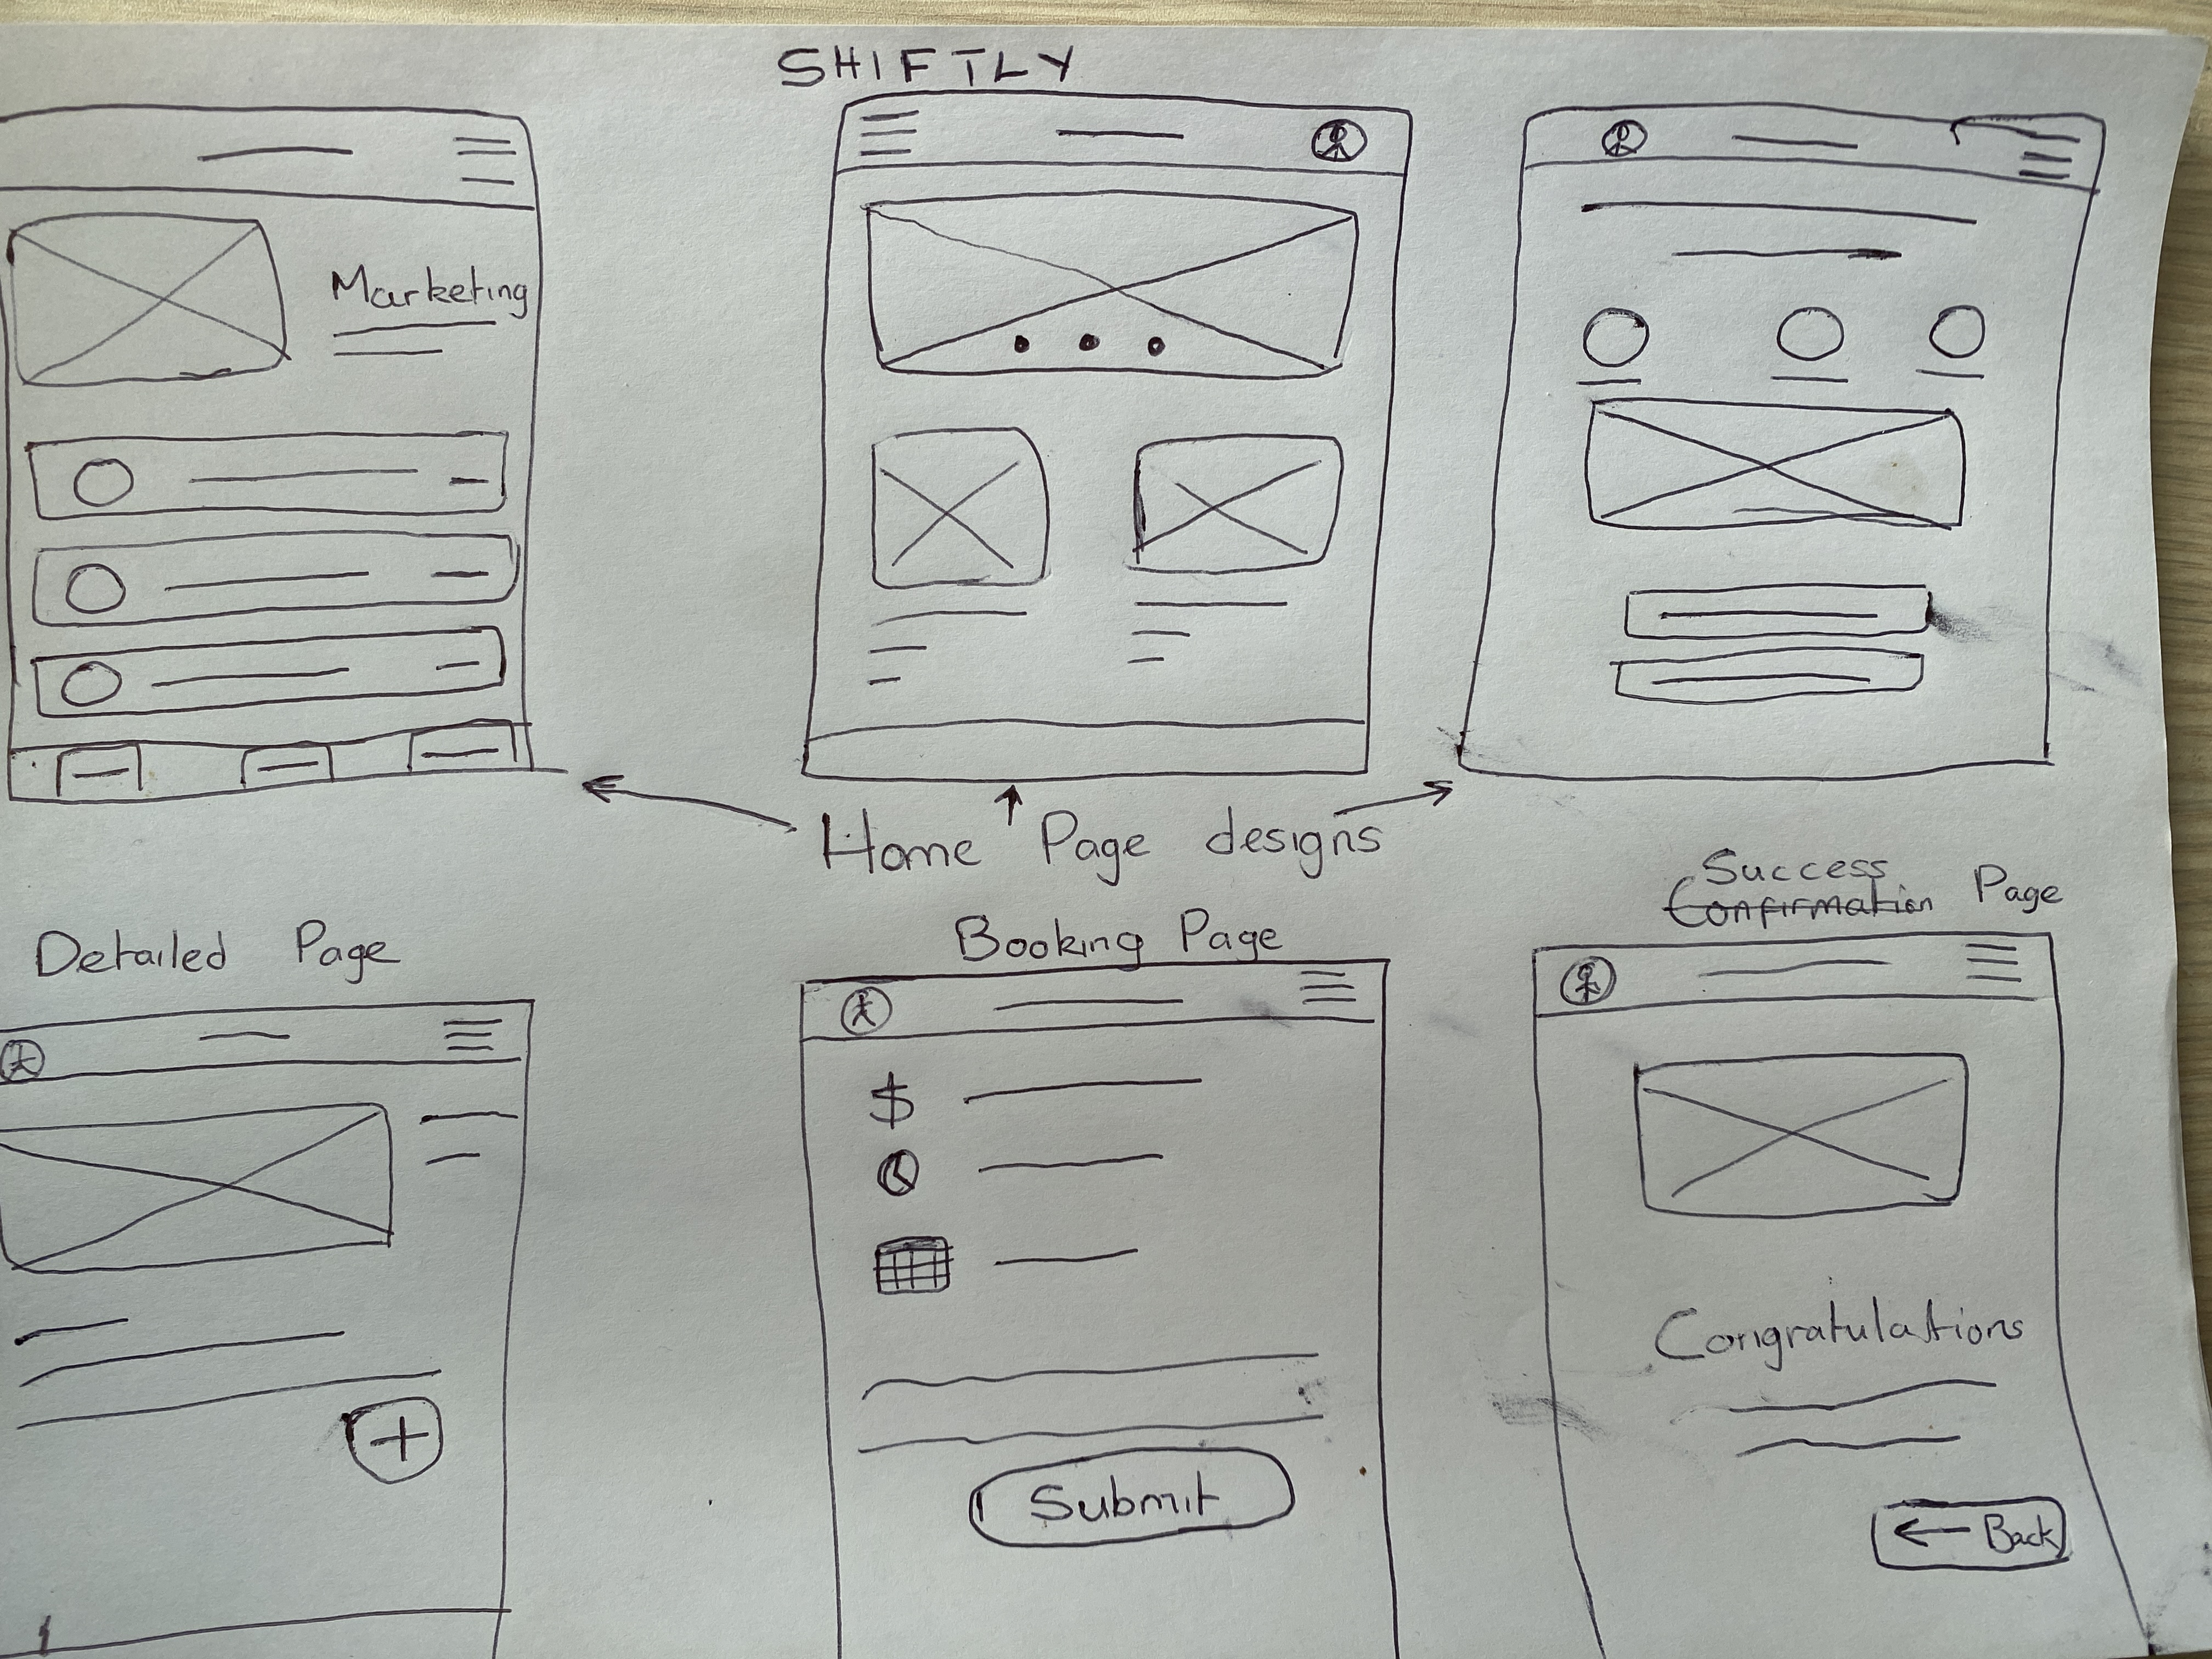 SHIFTLY
Marketing
Home Page designs
Detailed Page
Booking Page
$
Submit
Success
Confirmation Page
Congratulations
← Back